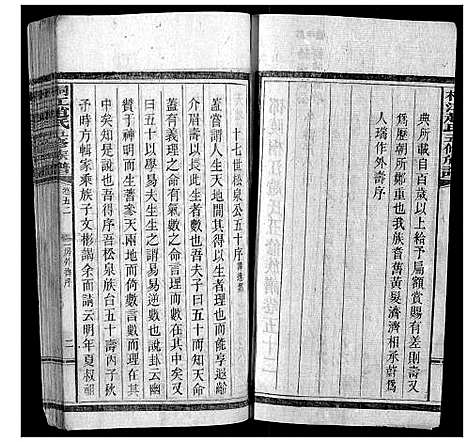 典所載自百歲以上給予扁額賞賜有差則壽
為歷朝所鄭重也我族耆舊黃髮濟濟相承許為
人瑞作外壽序
十七世松泉公五十序
蓋嘗謂人生天地間其得以生者理也而能享遐齡
介眉壽者數也然此生生之理數吾夫子曰五十而知天命
蓋有義理之命有氣數之命言理而數在其中矣又
曰五十以學易夫生生之謂易易逆數也說卦云幽
贊於神明而生蓍參天兩地而倚數言數而理在
其中矣可以序得吾松泉族台五十壽矣丙子秋
予時方輯家乘族子文彬謁余而請云明年夏叔
桐江趙氏三修族譜
卷五二
二